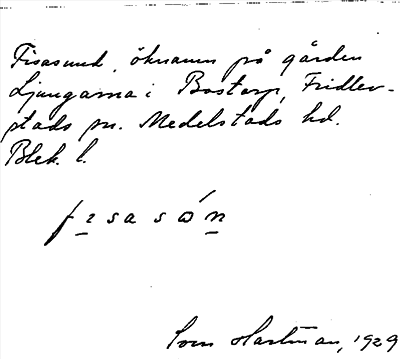 Fisasund, öknamn på gården
Ljungarna i Bostorp, Fridlev-
stads sn. Medelstads hd.
Blek. l.
Sven Hartman, 1929